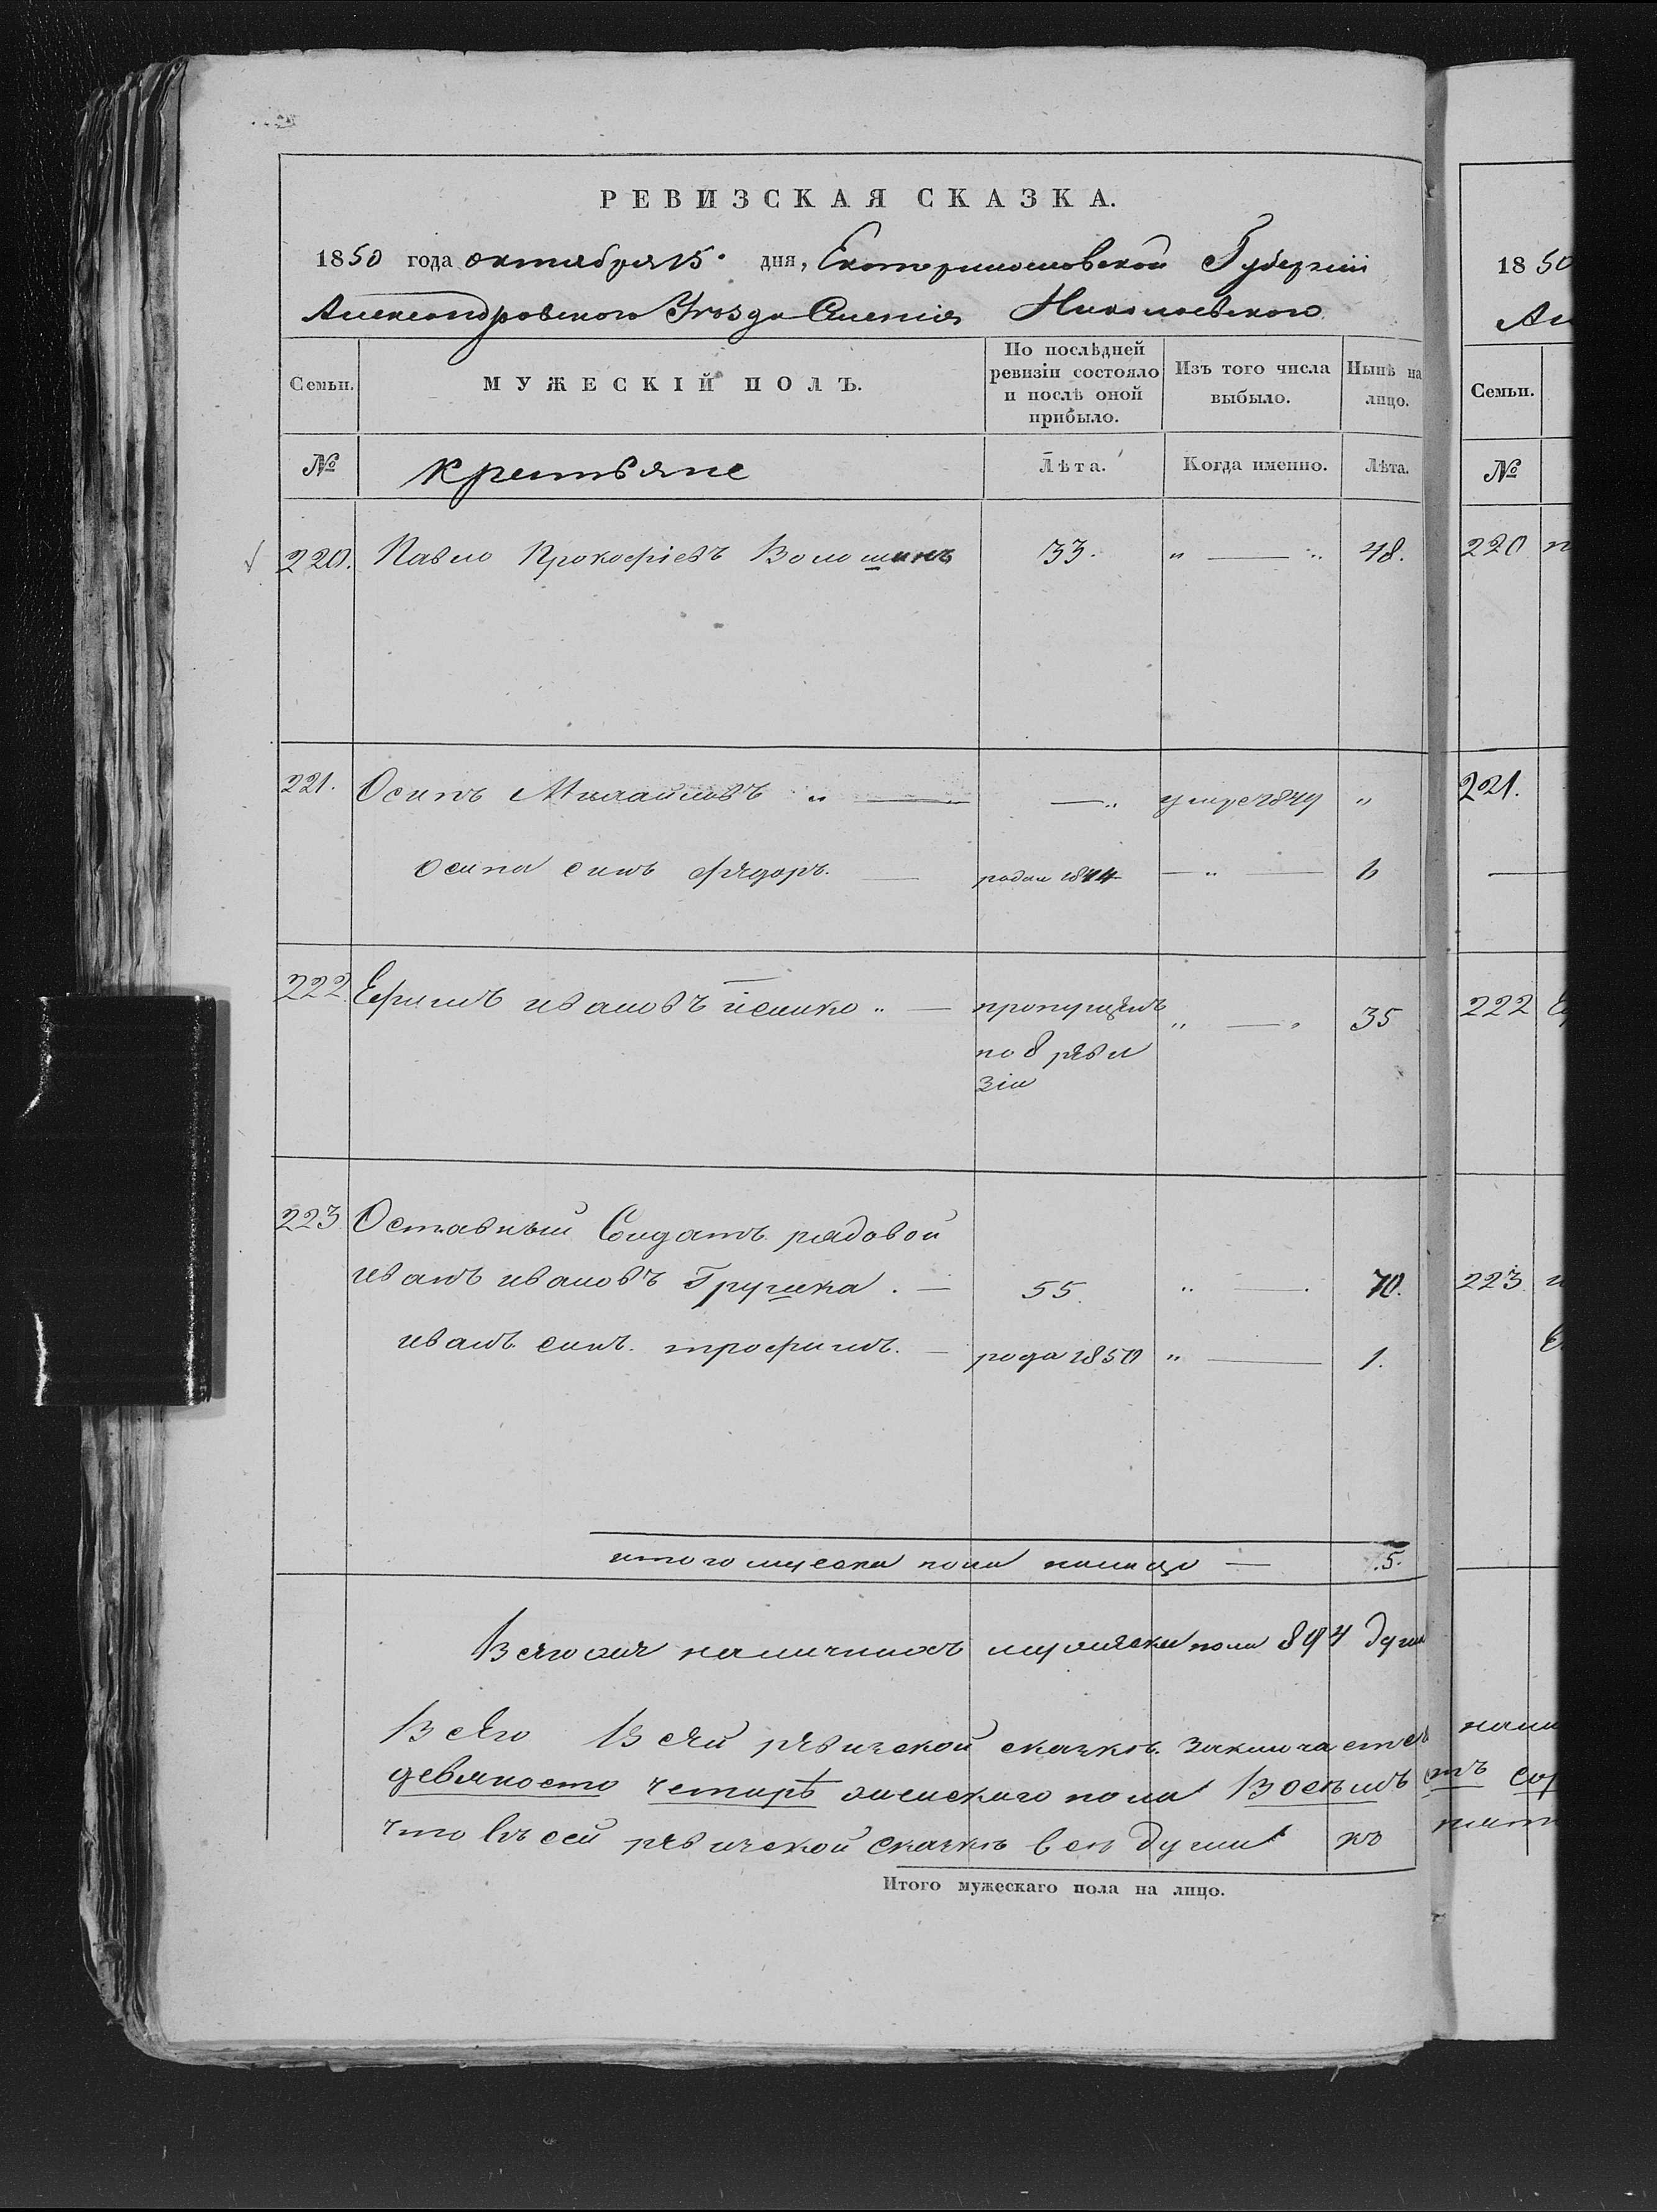 РЕВИЗСКАЯ СКАЗКА.
1850 года октября 15 дня, Екатеринославской Губерніи
Александровского Уезда Селенія Николаевского
Семьи. МУЖЕСКІЙ ПОЛЪ. По послѣдней ревизіи состояло и послѣ оной прибыло. Изъ того числа выбыло. Нынѣ на лицо.
№ Крестьяне Лѣта. Когда именно. Лѣта.
220. Павло Прокофіевъ Волошинъ 33. " — " 48.
221. Осипъ Михайловъ " — — " умре 1849 "
Осипа синъ Фядоръ. — родил 1844 — " — 6
222 Ефимъ ивановъ " — пропущенъ " — " 35
по 8 рѣви
зіи
223. Оставный Солдатъ рядовой
иванъ ивановъ Грушка . — 55. " — . 70.
иванъ синъ трофимъ. — рода 1850 " — 1.
итого мужска пола налицо — 5.
Всяго наличнихъ мужска пола 894 душ
Всяго Всей рявизской сказкѣ заключается
девяносто четирѣ женскаго пола Восемъ
что въ сей рявизской сказкѣ всѣ души къ
Итого мужескаго пола на лицо.
1850
Ал
Семьи.
№
220
221.
222
223